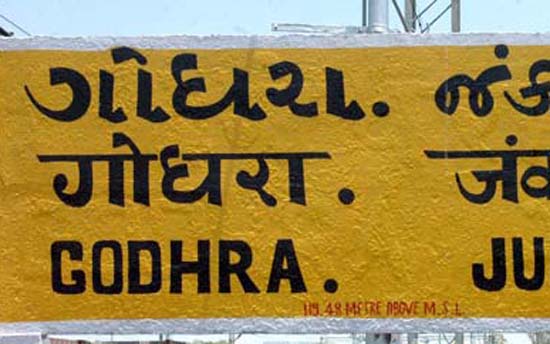 ગોધરા. જં
गोधरा. जं
GODHRA. JU
119.48 METRE ABOVE M.S.L.